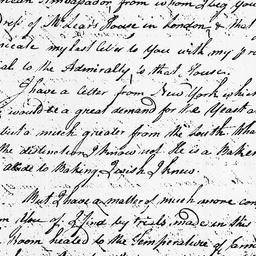 from whom I beg you
House in London & that
my last letter to You with my pro
al to the Admiralty is that House.
I have a letter from New York which
would be a great demand for the Yeast a
but a much greater from the South. Wha
the distinction I know not. He is a Baker
to Baking I wish I knew.
But I have a matter of much more con
I find by trials made in this
Room heated to the Temperature of